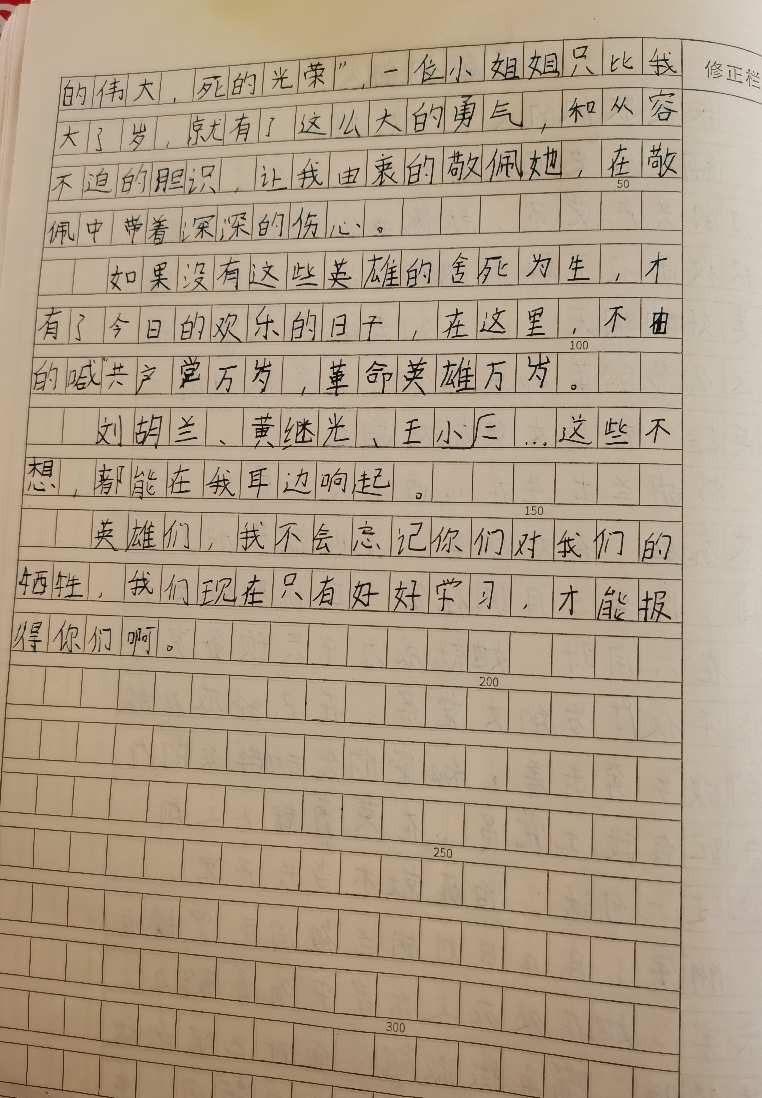 修正栏
的伟大，死的光荣”，一位小姐姐只比我
大了岁，就有了这么大的勇气，和从容
不迫的胆识，让我由衷的敬佩她，在敬
50
佩中带着深深的伤心。
如果没有这些英雄的舍死为生，才
有了今日的欢乐的日子，在这里，不由
100
的喊“共产党万岁，革命英雄万岁。
刘胡兰、黄继光、王小二…这些不
想，都能在我耳边响起。
150
英雄们，我不会忘记你们对我们的
牺牲，我们现在只有好好学习，才能报
得你们啊。
200
250
300